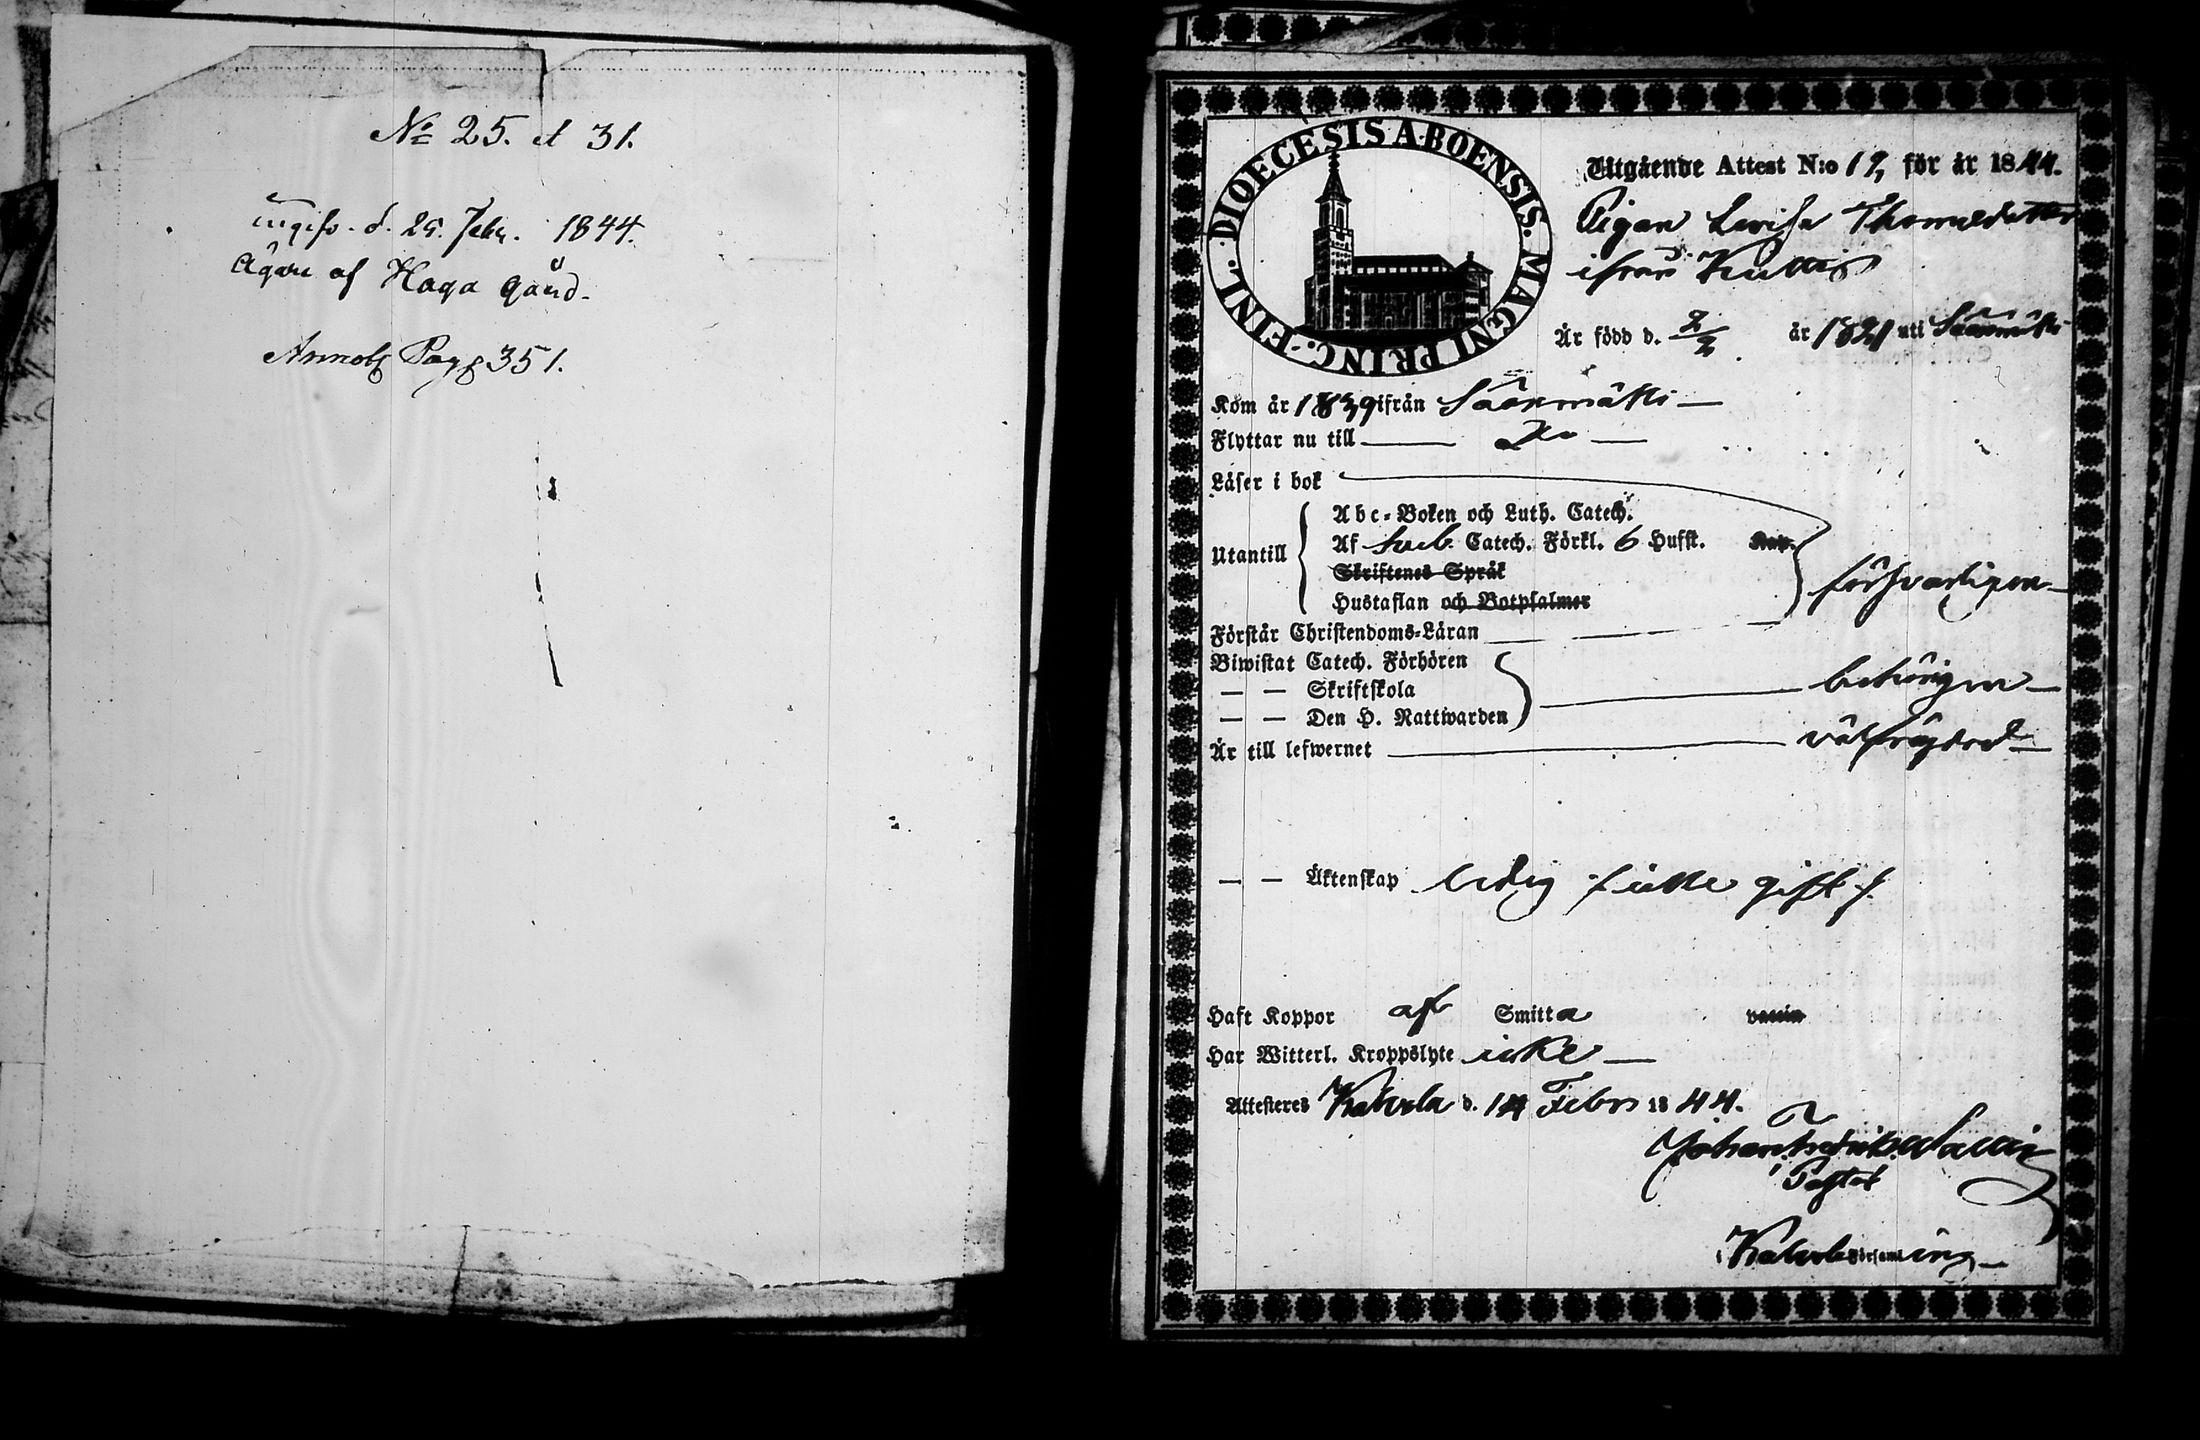 No 25. et 31.
ingifv. d. 25. Febr. 1844.
Ägare af Haga gård.
Annot. Pag. 351.
DIOECESIS ABOENSIS. MAGNI PRINC. FINL.
Utgående Attest N:o 19, för år 1844.
Pigan Lovisa Thomasdotter
ifrån Kuttis
Är född d. 2/2 år 1821 uti Säkmäki
Kom år 1839 ifrån Säkmäki —
Flyttar nu till — Do —
Läser i bok
Abc-Boken och Luth. Catech.
Utantill Af Sveb. Catech. Förkl. 6 Hufst. Kap.
Skriftenes Språk
Hustaflan och Botpsalmer
försvarligen —
Förstår Christendoms-Läran
Biwistat Catech. Förhören
— — Skriftskola — behörigen —
— — Den H. Nattwarden
Är till lefwernet — välfrägdad —
— — Äktenskap ledig icke gift
Haft Koppor af Smitta vaccin
Har Witterl. Kroppslyte icke —
Attesteras Kakola d. 14 Febr 1844.
Johan
Pastor
i Församl ing —